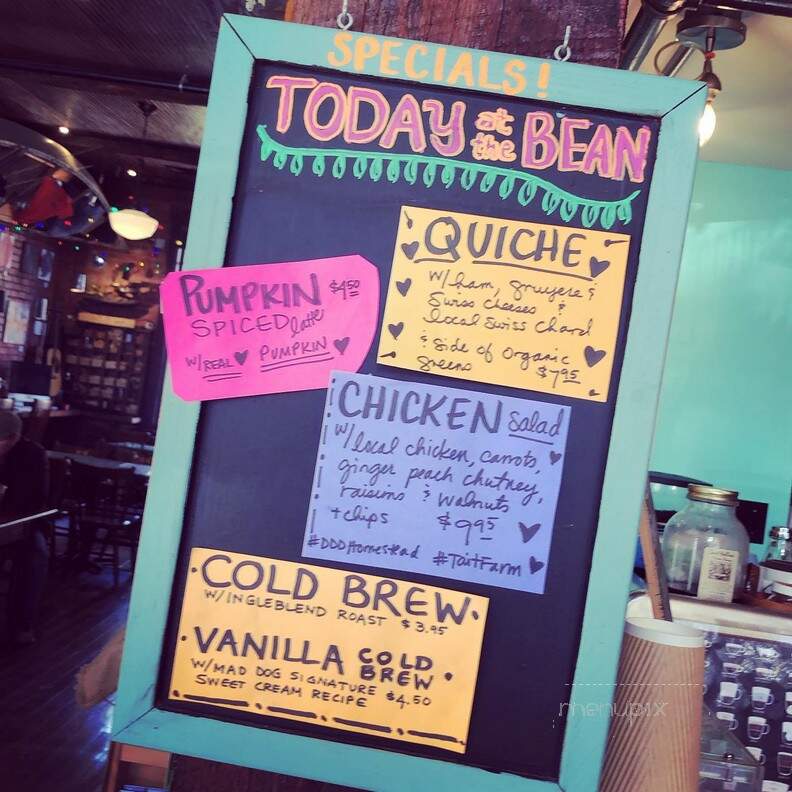 SPECIALS!
TODAY at the BEAN
QUICHE
w/ham, gruyere &
Swiss cheeses &
local Swiss chard
& side of organic
greens $7.95
PUMPKIN $4.50
SPICED latte
W/REAL PUMPKIN
CHICKEN salad
w/local chicken, carrots,
ginger peach chutney,
raisins & walnuts
+ chips $9.95
#DDDHomestead #TaitFarm
COLD BREW
W/INGLEBLEND ROAST $3.95
VANILLA COLD BREW
W/MAD DOG SIGNATURE $4.50
SWEET CREAM RECIPE
menupix